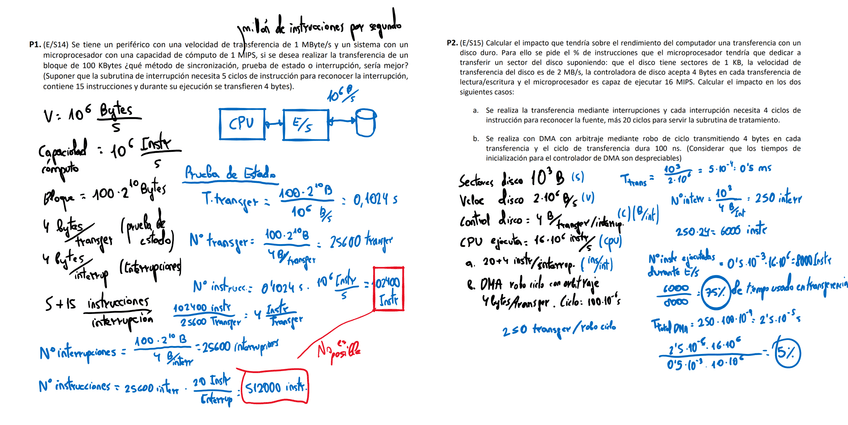 millón de instrucciones por segundo
P1. (E/S14) Se tiene un periférico con una velocidad de transferencia de 1 MByte/s y un sistema con un
microprocesador con una capacidad de cómputo de 1 MIPS, si se desea realizar la transferencia de un
bloque de 100 KBytes ¿qué método de sincronización, prueba de estado o interrupción, sería mejor?
(Suponer que la subrutina de interrupción necesita 5 ciclos de instrucción para reconocer la interrupción,
contiene 15 instrucciones y durante su ejecución se transfieren 4 bytes).
V = 10⁶ Bytes/s
CPU
E/S
10⁶ B/s
Capacidad cómputo = 10⁶ Instr/s
Bloque = 100·2¹⁰ Bytes
4 bytes/transfer (prueba de estado)
4 bytes/interrup (interrupciones)
5+15 instrucciones/interrupción
Prueba de Estado
T. transfer = 100·2¹⁰ B / 10⁶ B/s = 0,1024 s
Nº transfer = 100·2¹⁰ B / 4 B/transfer = 25600 transfer
Nº instrucc = 0'1024 s · 10⁶ Instr/s = 102400 Instr
102400 instr / 25600 Transfer = 4 Instr/Transfer
No es posible
Nº interrupciones = 100·2¹⁰ B / 4 B/interr = 25600 interrupciones
Nº instrucciones = 25600 interr · 20 Instr/Interrup = 512000 instr.
P2. (E/S15) Calcular el impacto que tendría sobre el rendimiento del computador una transferencia con un
disco duro. Para ello se pide el % de instrucciones que el microprocesador tendría que dedicar a
transferir un sector del disco suponiendo: que el disco tiene sectores de 1 KB, la velocidad de
transferencia del disco es de 2 MB/s, la controladora de disco acepta 4 Bytes en cada transferencia de
lectura/escritura y el microprocesador es capaz de ejecutar 16 MIPS. Calcular el impacto en los dos
siguientes casos:
a. Se realiza la transferencia mediante interrupciones y cada interrupción necesita 4 ciclos de
instrucción para reconocer la fuente, más 20 ciclos para servir la subrutina de tratamiento.
b. Se realiza con DMA con arbitraje mediante robo de ciclo transmitiendo 4 bytes en cada
transferencia y el ciclo de transferencia dura 100 ns. (Considerar que los tiempos de
inicialización para el controlador de DMA son despreciables)
Sectores disco 10³ B (s)
Veloc disco 2·10⁶ B/s (v)
Control disco = 4 B/transfer/interrup. (c)(B/int)
CPU ejecuta = 16·10⁶ instr/s (cpu)
a. 20+4 instr/interrup. (ins/int)
b. DMA robo ciclo con arbitraje
4 bytes/transfer. Ciclo: 100·10⁻⁹ s
250 transfer/robo ciclo
T trans = 10³ / 2·10⁶ = 5·10⁻⁴ = 0'5 ms
Nº interr = 10³ / 4 B/int = 250 interr
250·24 = 6000 instr
Nº instr ejecutadas durante E/S = 0'5·10⁻³·16·10⁶ = 8000 Instr
6000/8000 = 75% de tiempo usado en transferencia
Ttotal DMA = 250·100·10⁻⁹ = 2'5·10⁻⁵ s
2'5·10⁻⁶·16·10⁶ / 0'5·10⁻³·10·10⁶ = 5%